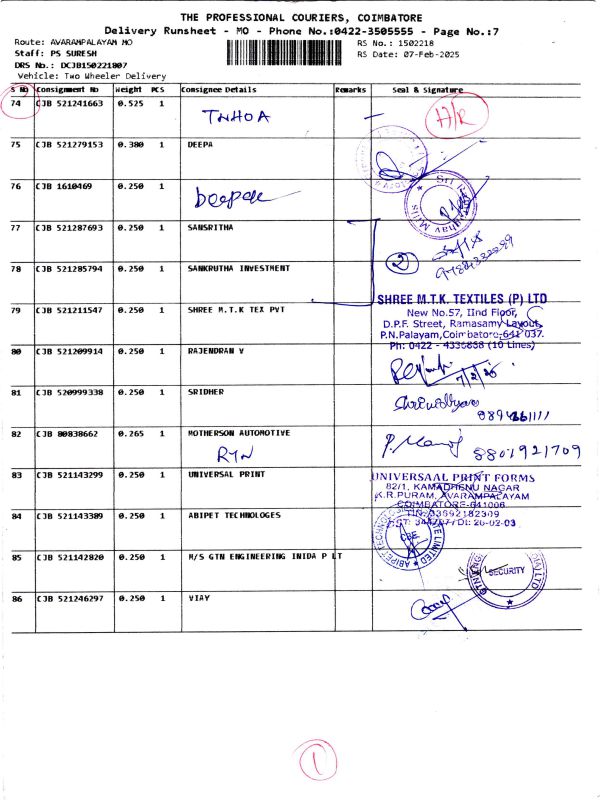 THE PROFESSIONAL COURIERS, COIMBATORE
Delivery Runsheet - MO - Phone No.:0422-3505555 - Page No.:7
Route: AVARAMPALAYAM MO
RS No.: 1502218
Staff: PS SURESH
RS Date: 07-Feb-2025
DRS No.: DCJB150221807
Vehicle: Two Wheeler Delivery
S No Consignment No Weight PCS Consignee Details Remarks Seal & Signature
74 CJB 521241663 0.525 1 TNHOA
75 CJB 521279153 0.380 1 DEEPA
76 CJB 1610469 0.250 1 Deepak
77 CJB 521287693 0.250 1 SANSRITHA
78 CJB 521285794 0.250 1 SANKRUTHA INVESTMENT
2
79 CJB 521211547 0.250 1 SHREE M.T.K TEX PVT
SHREE M.T.K. TEXTILES (P) LTD
New No.57, IInd Floor,
D.P.F. Street, Ramasamy Layout,
P.N.Palayam,Coimbatore-641 037.
Ph: 0422 - 4336888 (10 Lines)
80 CJB 521209914 0.250 1 RAJENDRAN V
7/2/25
81 CJB 520999338 0.250 1 SRIDHER
82 CJB 80838662 0.265 1 MOTHERSON AUTOMOTIVE
8801921709
83 CJB 521143299 0.250 1 UNIVERSAL PRINT
UNIVERSAAL PRINT FORMS
82/1, KAMADHENU NAGAR
K.R.PURAM, AVARAMPALAYAM
COIMBATORE-641006
84 CJB 521143389 0.250 1 ABIPET TECHNOLOGES
CBE
85 CJB 521142820 0.250 1 M/S GTN ENGINEERING INIDA P LT
SECURITY
86 CJB 521246297 0.250 1 VIJAY
1